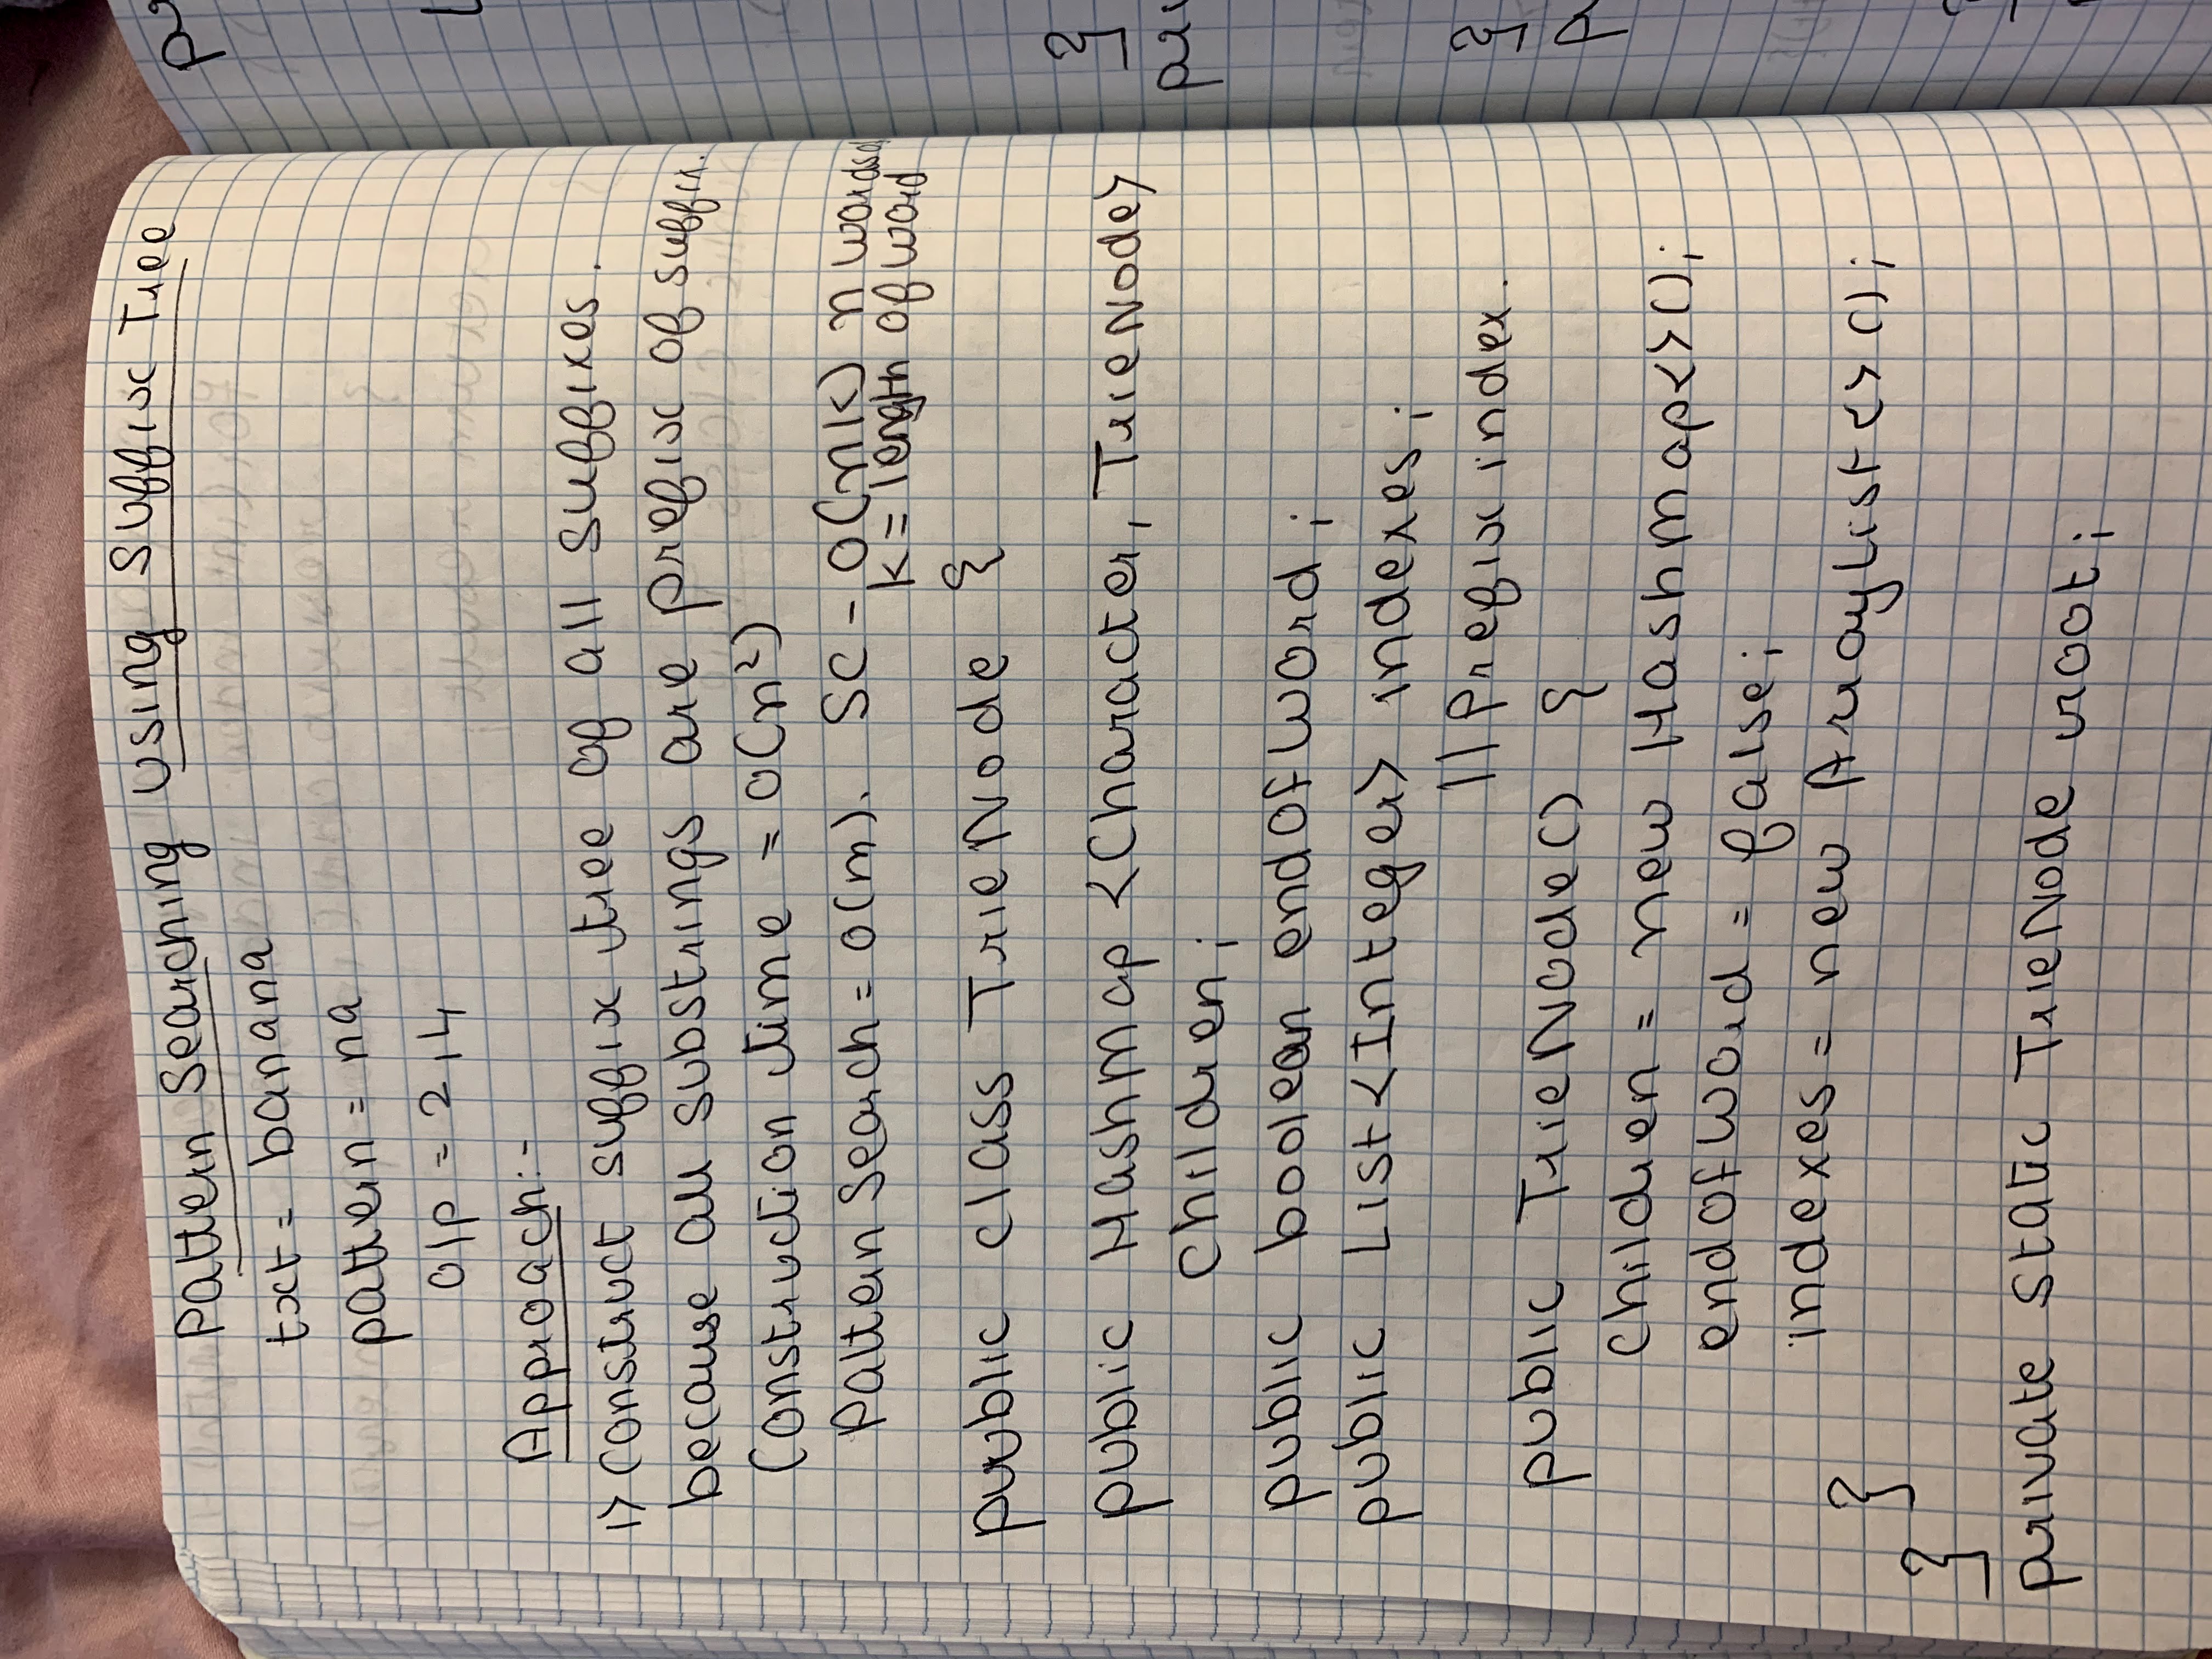 Pattern Searching Using Suffix Tree
txt = banana
pattern = na
O/P = 2,4
Approach:-
1) Construct suffix tree of all suffixes.
because all substrings are prefix of suffix.
Construction time = O(n²)
Pattern Search = O(m). SC - O(nk) n words
k = length of word
public class TrieNode {
public HashMap <Character, TrieNode>
children;
public boolean endOfWord;
public List<Integer> indexes;
// Prefix index.
public TrieNode() {
children = new HashMap<>();
endOfWord = false;
indexes = new ArrayList<>();
}
}
private static TrieNode root;
}
}